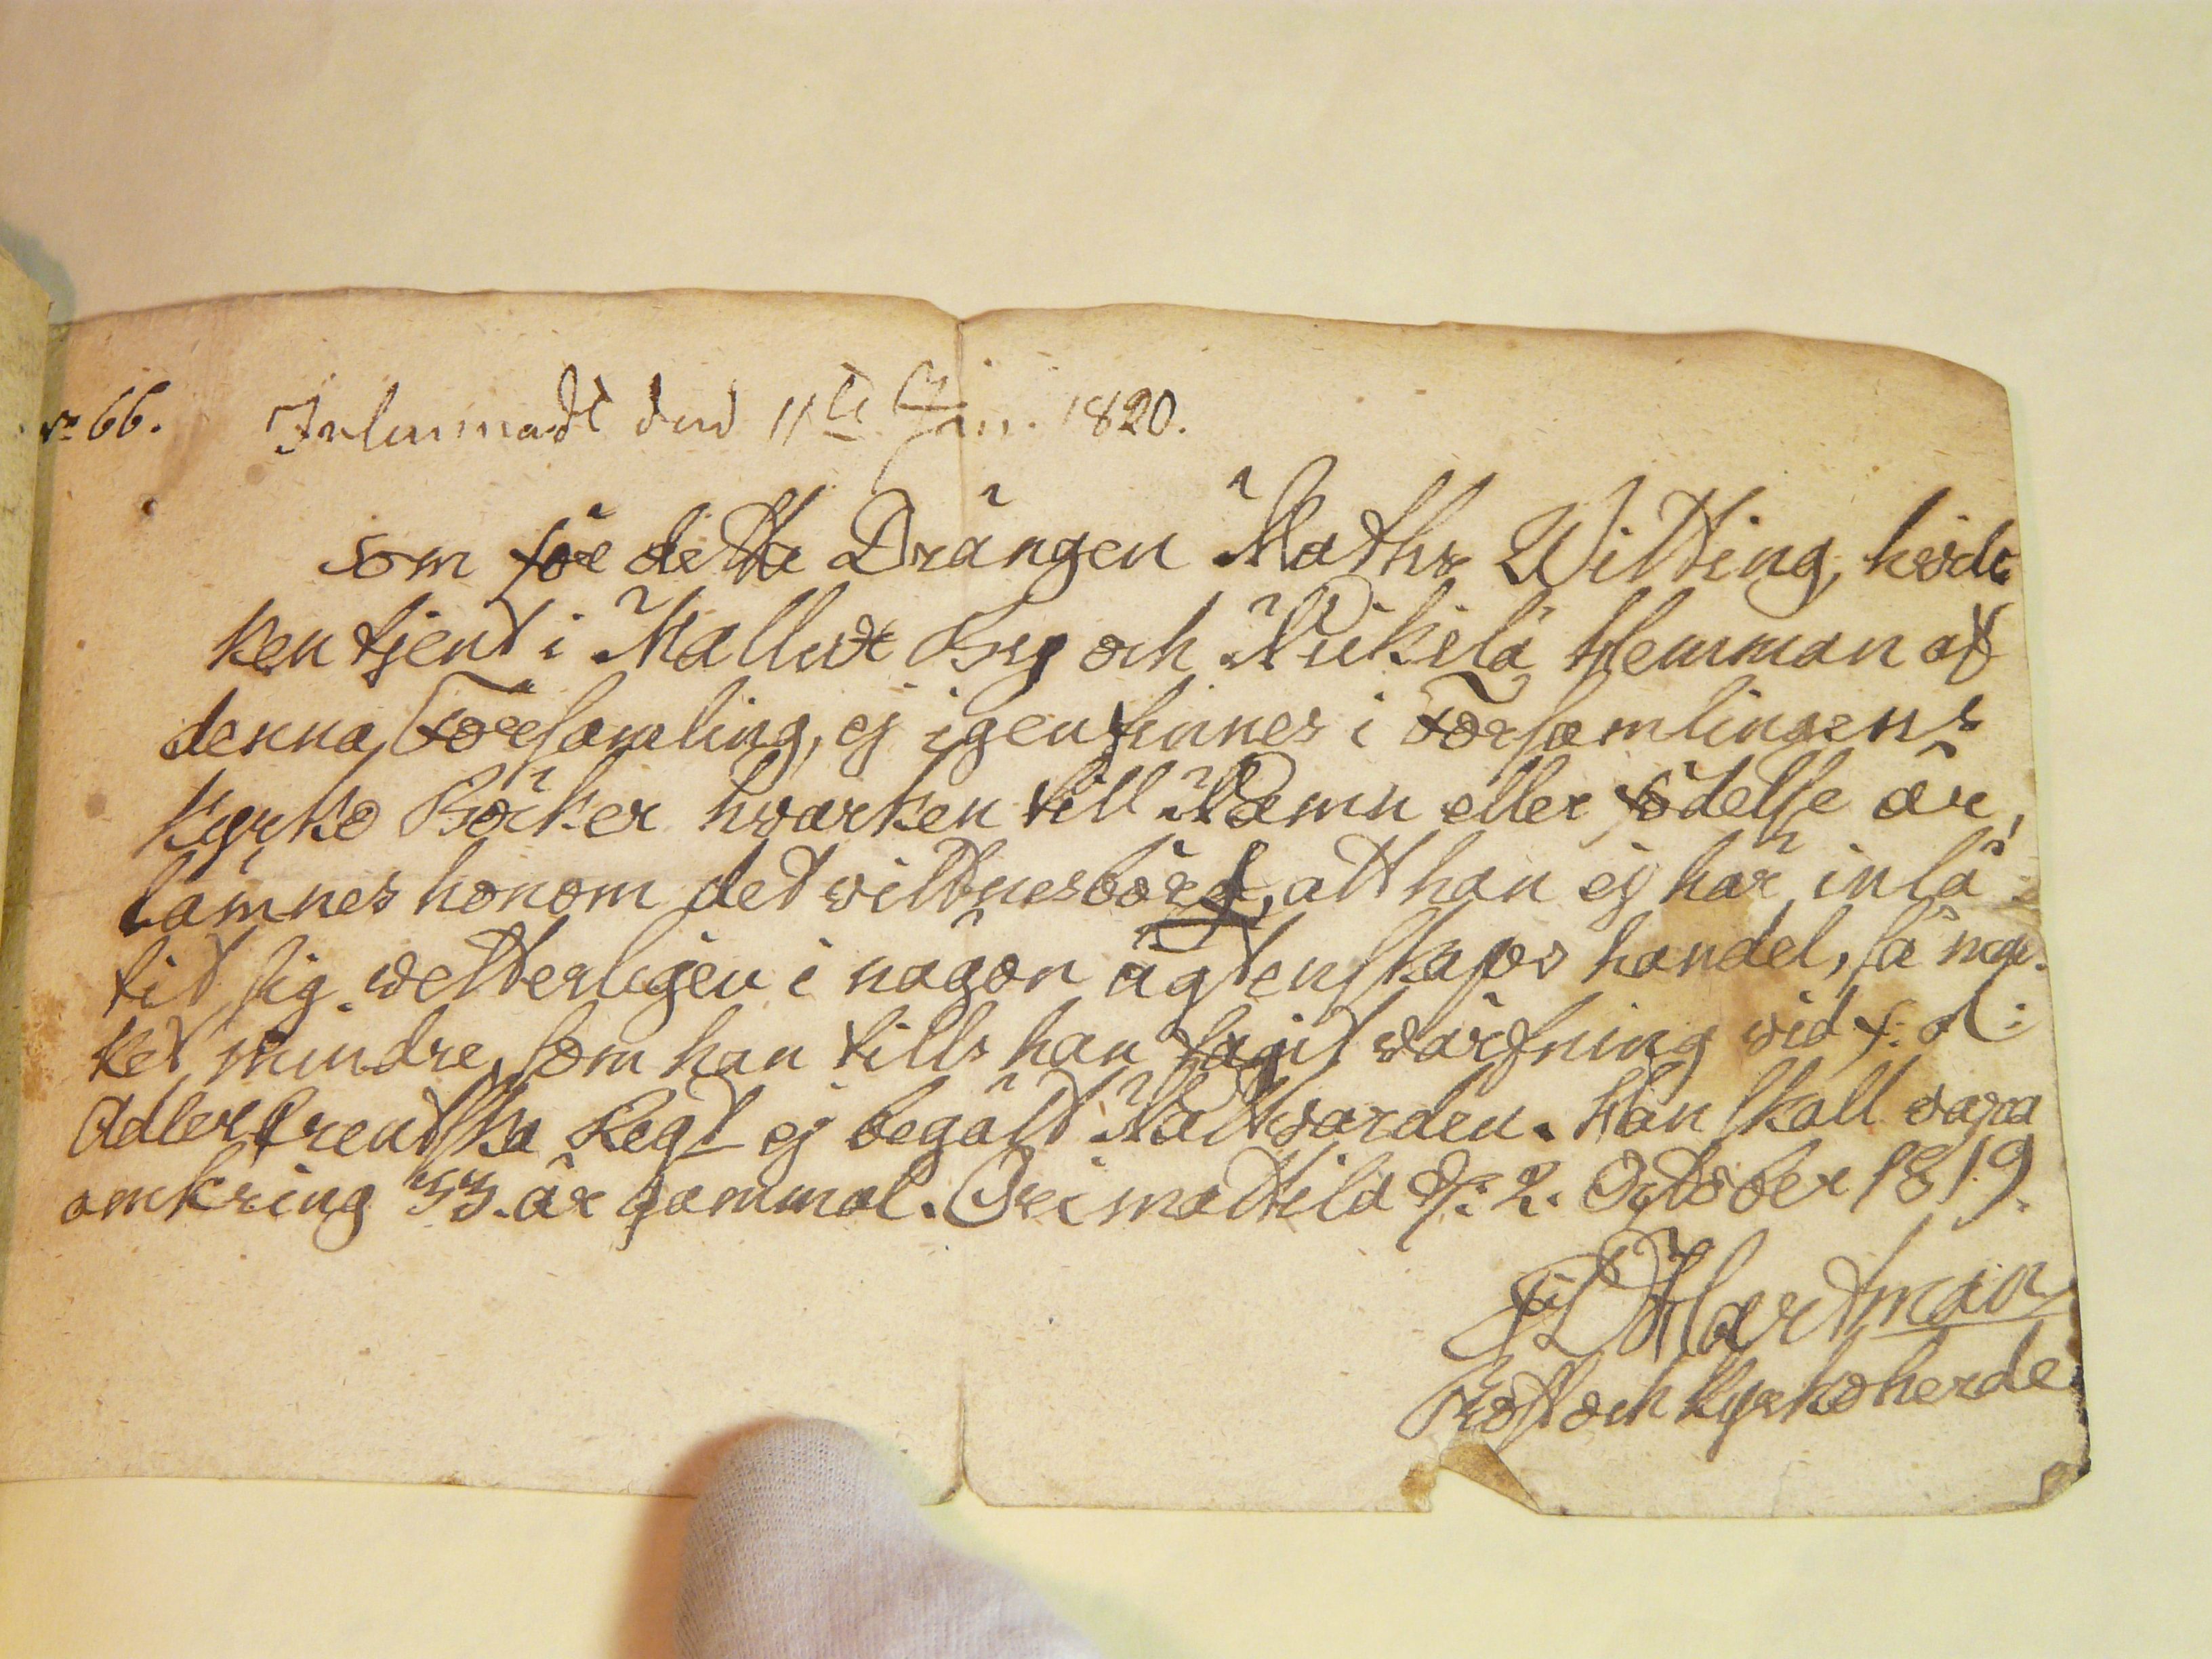 No 66. Inlemnadt den 11te Jan. 1820.
som före detta Drängen Maths Witting, hvil
ken tjent i Mallus By och Nickilä Hemman af
denna Församling, ej igenfinnes i Församlingens
Kyrko Böcker hvarken till Namn eller födelse år,
lämnes honom det vittnesbörd, att han ej här inlå
tit sig vetterligen i någon ägtenskaps handel, så myc
ket mindre, som han tills han tagit värfning vid f. d:
Adlercreutzska Regt ej begått Nattvarden. Han skall vara
omkring 33. år gammal. Orimattila d: 2. October 1819.
Hartman
Prost och Kyrkoherde